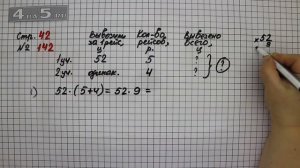 4 на 5.ru
Стр. 42
№ 142
Вывезли за 1 рейс, ц
Кол-во рейсов, р.
Вывезено всего, ц
1 уч. 52 5 ?
2 уч. одинак. 4 ?
?
1) 52 · (5+4) = 52 · 9 =
× 52
9